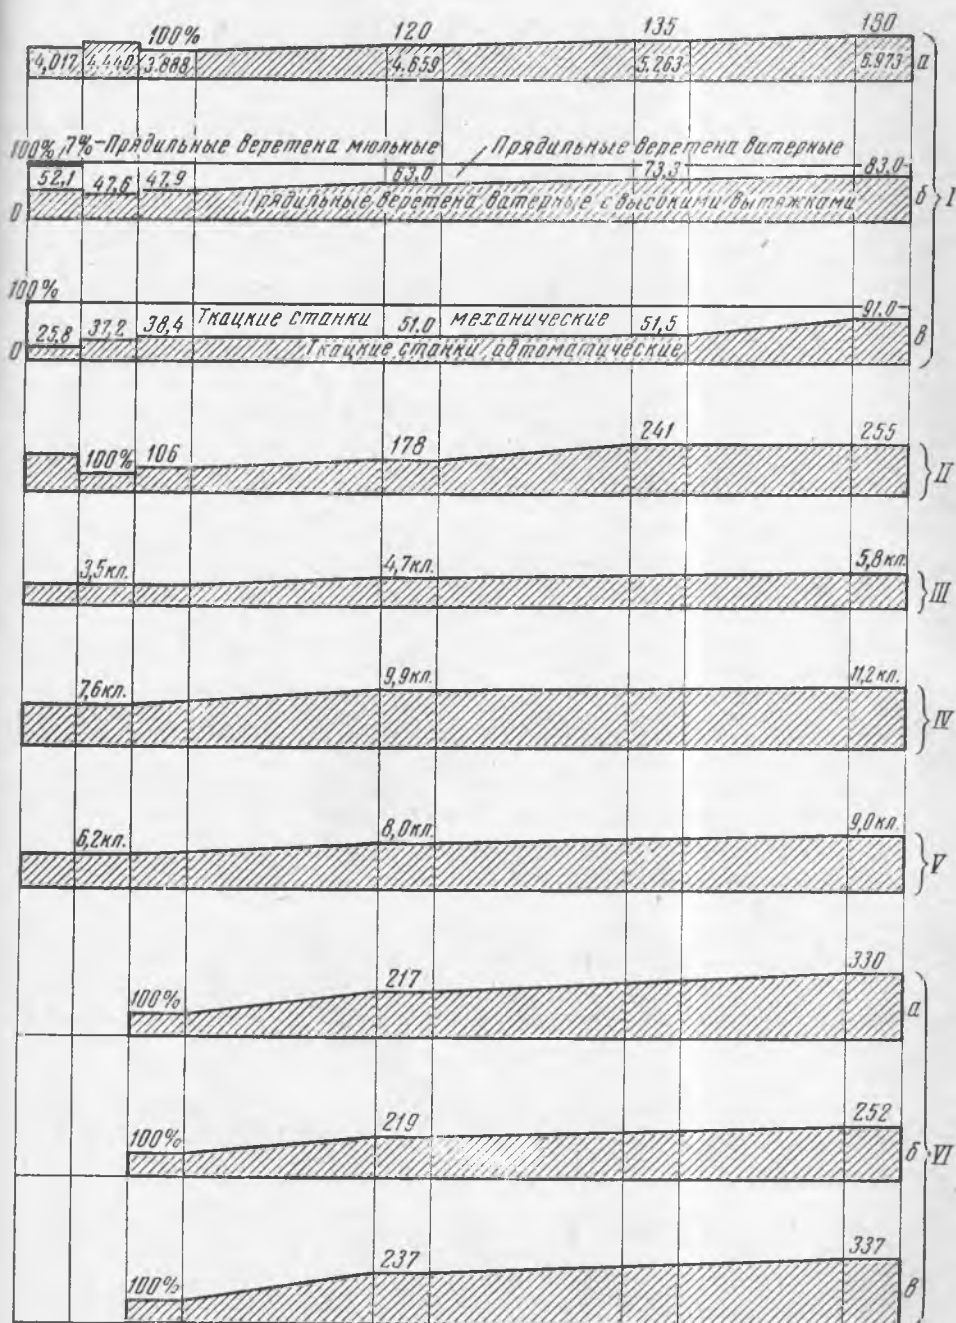 100% 120 135 180
4,017 4.440 3.888 4.659 5.263 6.973 а
100% ,7%-Прядильные веретена мюльные Прядильные веретена ватерные
52,1 47,6 47,9 63,0 73,3 83,0
0 Прядильные веретена ватерные с высокими вытяжками б I
100%
25,8 37,2 38,4 Ткацкие станки 51.0 механические 51,5 91.0 в
0 Ткацкие станки автоматические
100% 106 178 241 255
II
3,5кл. 4,7кл. 5,8кл.
III
7,6кл. 9,9кл. 11,2кл.
IV
6,2кл. 8,0кл. 9,0кл.
V
100% 217 330
а
100% 219 252
б VI
100% 237 337
в